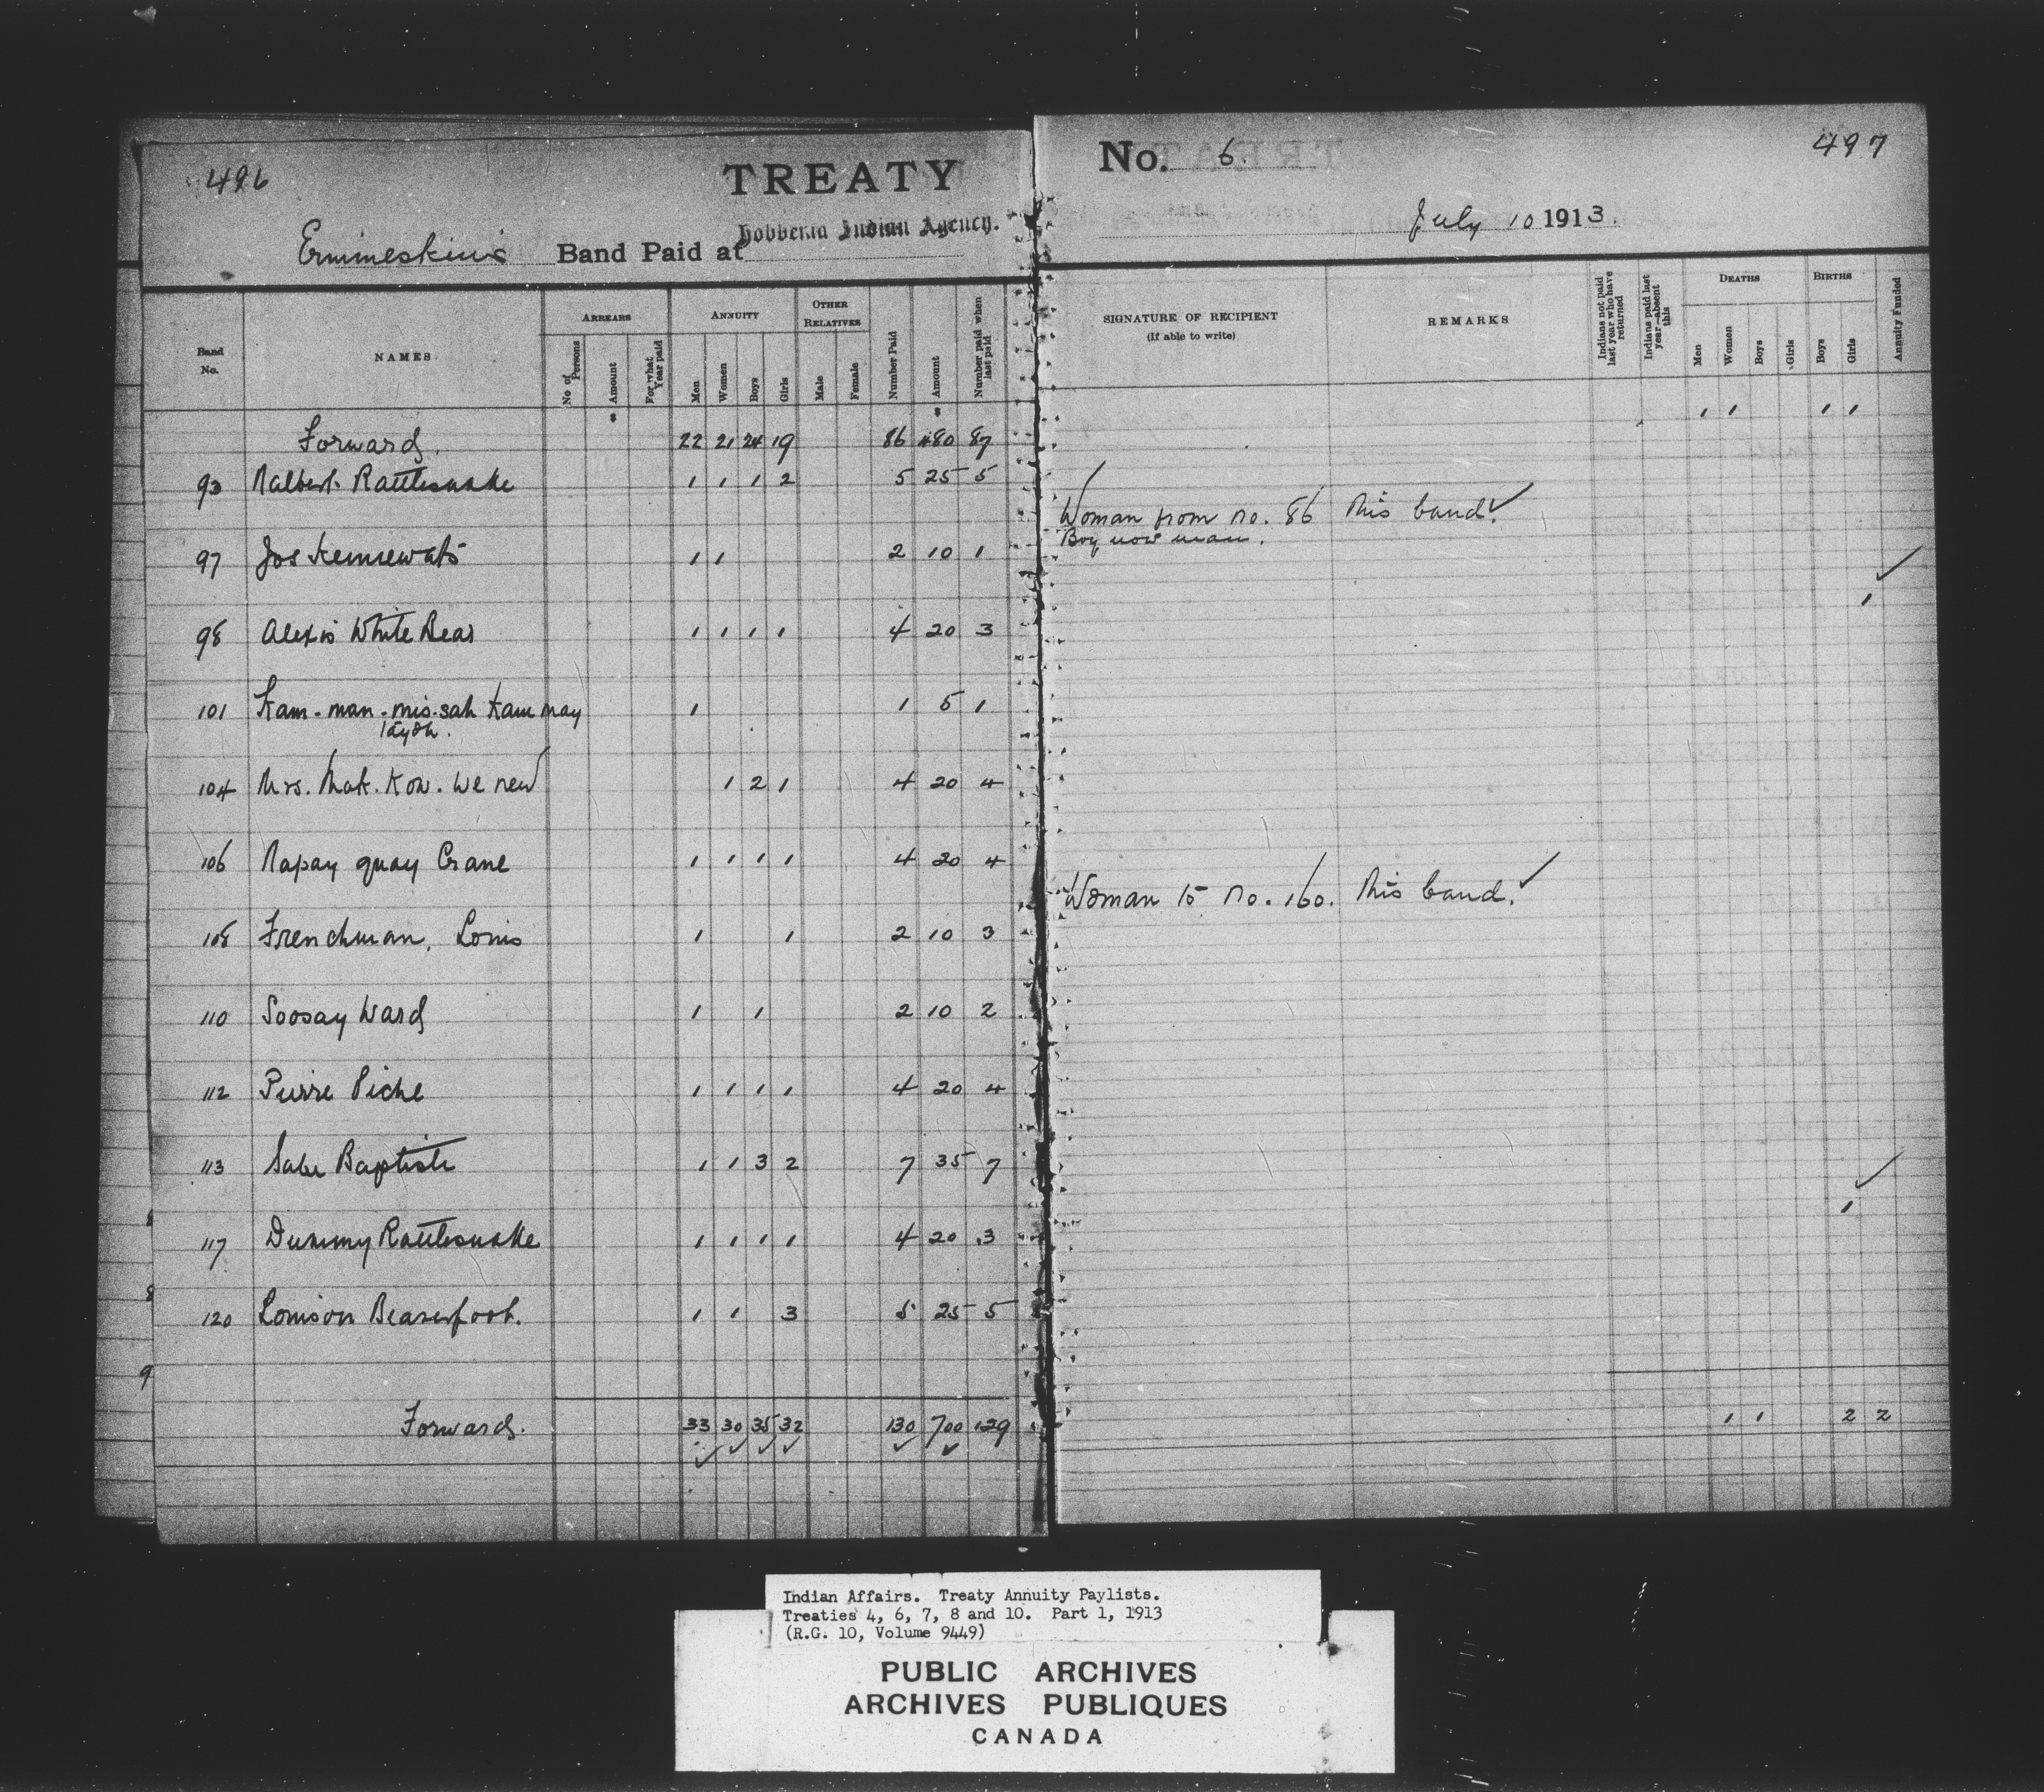 496
TREATY
Ermineskin's Band Paid at Hobbema Indian Agency.
Band No.
NAMES
ARREARS
No of Persons
Amount
For what Year paid
ANNUITY
Men
Women
Boys
Girls
OTHER RELATIVES
Male
Female
Number Paid
Amount
Number paid when last paid
Forward. 22 21 24 19 86 480 87
93 Nalbert Rattlesnake 1 1 1 2 5 25 5
97 Jos 1 1 2 10 1
98 Alexis White Bear 1 1 1 1 4 20 3
101 Kam-man-mis-sah Kam may 1 1 5 1
tayoh.
104 Mrs. Mak. Kow. we new 1 2 1 4 20 4
106 Napay quay Crane 1 1 1 1 4 20 4
108 Frenchman, Louis 1 1 2 10 3
110 Soosay Ward 1 1 2 10 2
112 Pierre Piche 1 1 1 1 4 20 4
113 Baptiste 1 1 3 2 7 35 7
117 Dummy Rattlesnake 1 1 1 1 4 20 3
120 Louison Beaverfoot. 1 1 3 5 25 5
Forward. 33 30 35 32 130 700 129
No. 6.
497
July 10 1913.
SIGNATURE OF RECIPIENT
(If able to write)
REMARKS
Indians not paid last year who have returned
Indians paid last year—absent this
DEATHS
Men
Women
Boys
Girls
BIRTHS
Boys
Girls
Annuity Funded
1 1 1 1
Woman from no. 86 this band.
Boy now man.
1
Woman to no. 160. this band.
1
1 1 2 2
Indian Affairs. Treaty Annuity Paylists.
Treaties 4, 6, 7, 8 and 10. Part 1, 1913
(R.G. 10, Volume 9449)
PUBLIC ARCHIVES
ARCHIVES PUBLIQUES
CANADA